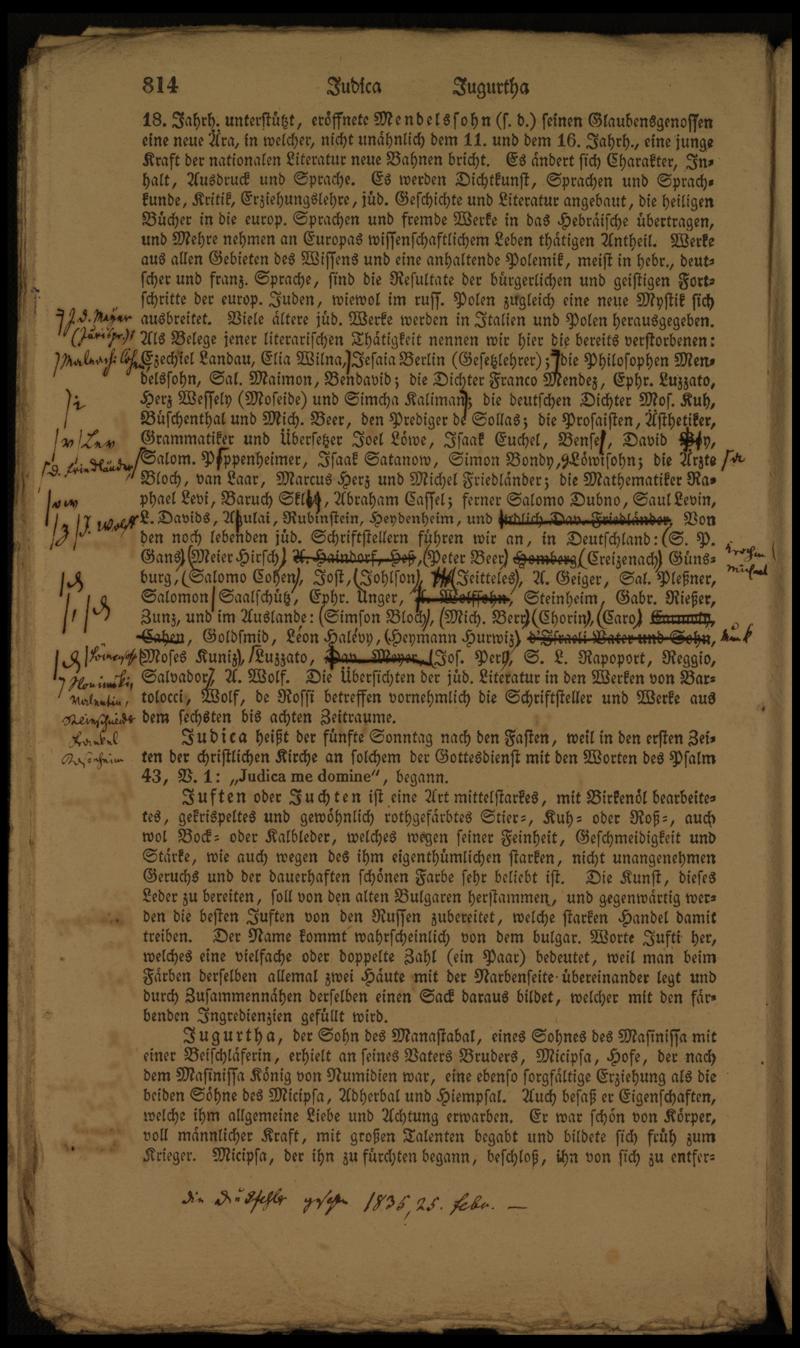 814 Judica Jugurtha
18. Jahrh. unterstützt, eröffnete Mendelssohn (s. d.) seinen Glaubensgenossen
eine neue Ära, in welcher, nicht unähnlich dem 11. und dem 16. Jahrh., eine junge
Kraft der nationalen Literatur neue Bahnen bricht. Es ändert sich Charakter, In-
halt, Ausdruck und Sprache. Es werden Dichtkunst, Sprachen und Sprach-
kunde, Kritik, Erziehungslehre, jüd. Geschichte und Literatur angebaut, die heiligen
Bücher in die europ. Sprachen und fremde Werke in das Hebräische übertragen,
und Mehre nehmen an Europas wissenschaftlichem Leben thätigen Antheil. Werke
aus allen Gebieten des Wissens und eine anhaltende Polemik, meist in hebr., deut-
scher und franz. Sprache, sind die Resultate der bürgerlichen und geistigen Fort-
schritte der europ. Juden, wiewol im russ. Polen zugleich eine neue Mystik sich
J. D. Meyer
ausbreitet. Viele ältere jüd. Werke werden in Italien und Polen herausgegeben.
Als Belege jener literarischen Thätigkeit nennen wir hier die bereits verstorbenen:
Ezechiel Landau, Elia Wilna, Jesaia Berlin (Gesetzlehrer); die Philosophen Men-
delssohn, Sal. Maimon, Bendavid; die Dichter Franco Mendez, Ephr. Luzzato,
Herz Wessely (Moseide) und Simcha Kaliman; die deutschen Dichter Mos. Kuh,
Büschenthal und Mich. Beer, den Prediger de Sollas; die Prosaisten, Ästhetiker,
Grammatiker und Übersetzer Joel Löwe, Isaak Euchel, Bense, David
D. Friedländer
Salom. Pappenheimer, Isaak Satanow, Simon Bondy, Löwisohn; die Ärzte
Bloch, van Laar, Marcus Herz und Michel Friedländer; die Mathematiker Ra-
phael Levi, Baruch , Abraham Cassel; ferner Salomo Dubno, Saul Levin,
J. Wolff
L. Davids, Asulai, Rubinstein, Heydenheim, und endlich Dav. Friedländer. Von
den noch lebenden jüd. Schriftstellern führen wir an, in Deutschland: (S. P.
Gans) (Meier Hirsch) A. Haindorf, Heß, (Peter Beer) Homberg (Creizenach) Güns-
burg, (Salomo Cohen), Jost, (Johlson), (Jeitteles), A. Geiger, Sal. Pleßner,
Salomon Saalschütz, Ephr. Unger, Wolfssohn, Steinheim, Gabr. Rießer,
Zunz, und im Auslande: (Simson Bloch), (Mich. Berr) (Chorin), (Caro)
Cahen, Goldsmid, Léon Halévy, (Heymann Hurwiz) d'Israeli Vater und Sohn,
Moses Kuniz), Luzzato, Dav. Meyer, (Jos. Perl), S. L. Rapoport, Reggio,
Salvador, A. Wolf. Die Übersichten der jüd. Literatur in den Werken von Bar-
tolocci, Wolf, de Rossi betreffen vornehmlich die Schriftsteller und Werke aus
dem sechsten bis achten Zeitraume.
Judica heißt der fünfte Sonntag nach den Fasten, weil in den ersten Zei-
ten der christlichen Kirche an solchem der Gottesdienst mit den Worten des Psalm
43, V. 1: „Judica me domine“, begann.
Juften oder Juchten ist eine Art mittelstarkes, mit Birkenöl bearbeite-
tes, gekrispeltes und gewöhnlich rothgefärbtes Stier-, Kuh- oder Roß-, auch
wol Bock- oder Kalbleder, welches wegen seiner Feinheit, Geschmeidigkeit und
Stärke, wie auch wegen des ihm eigenthümlichen starken, nicht unangenehmen
Geruchs und der dauerhaften schönen Farbe sehr beliebt ist. Die Kunst, dieses
Leder zu bereiten, soll von den alten Bulgaren herstammen, und gegenwärtig wer-
den die besten Juften von den Russen zubereitet, welche starken Handel damit
treiben. Der Name kommt wahrscheinlich von dem bulgar. Worte Jufti her,
welches eine vielfache oder doppelte Zahl (ein Paar) bedeutet, weil man beim
Färben derselben allemal zwei Häute mit der Narbenseite übereinander legt und
durch Zusammennähen derselben einen Sack daraus bildet, welcher mit den fär-
benden Ingredienzien gefüllt wird.
Jugurtha, der Sohn des Manastabal, eines Sohnes des Masinissa mit
einer Beischläferin, erhielt an seines Vaters Bruders, Micipsa, Hofe, der nach
dem Masinissa König von Numidien war, eine ebenso sorgfältige Erziehung als die
beiden Söhne des Micipsa, Adherbal und Hiempsal. Auch besaß er Eigenschaften,
welche ihm allgemeine Liebe und Achtung erwarben. Er war schön von Körper,
voll männlicher Kraft, mit großen Talenten begabt und bildete sich früh zum
Krieger. Micipsa, der ihn zu fürchten begann, beschloß, ihn von sich zu entfer-
1836, 25. febr. —